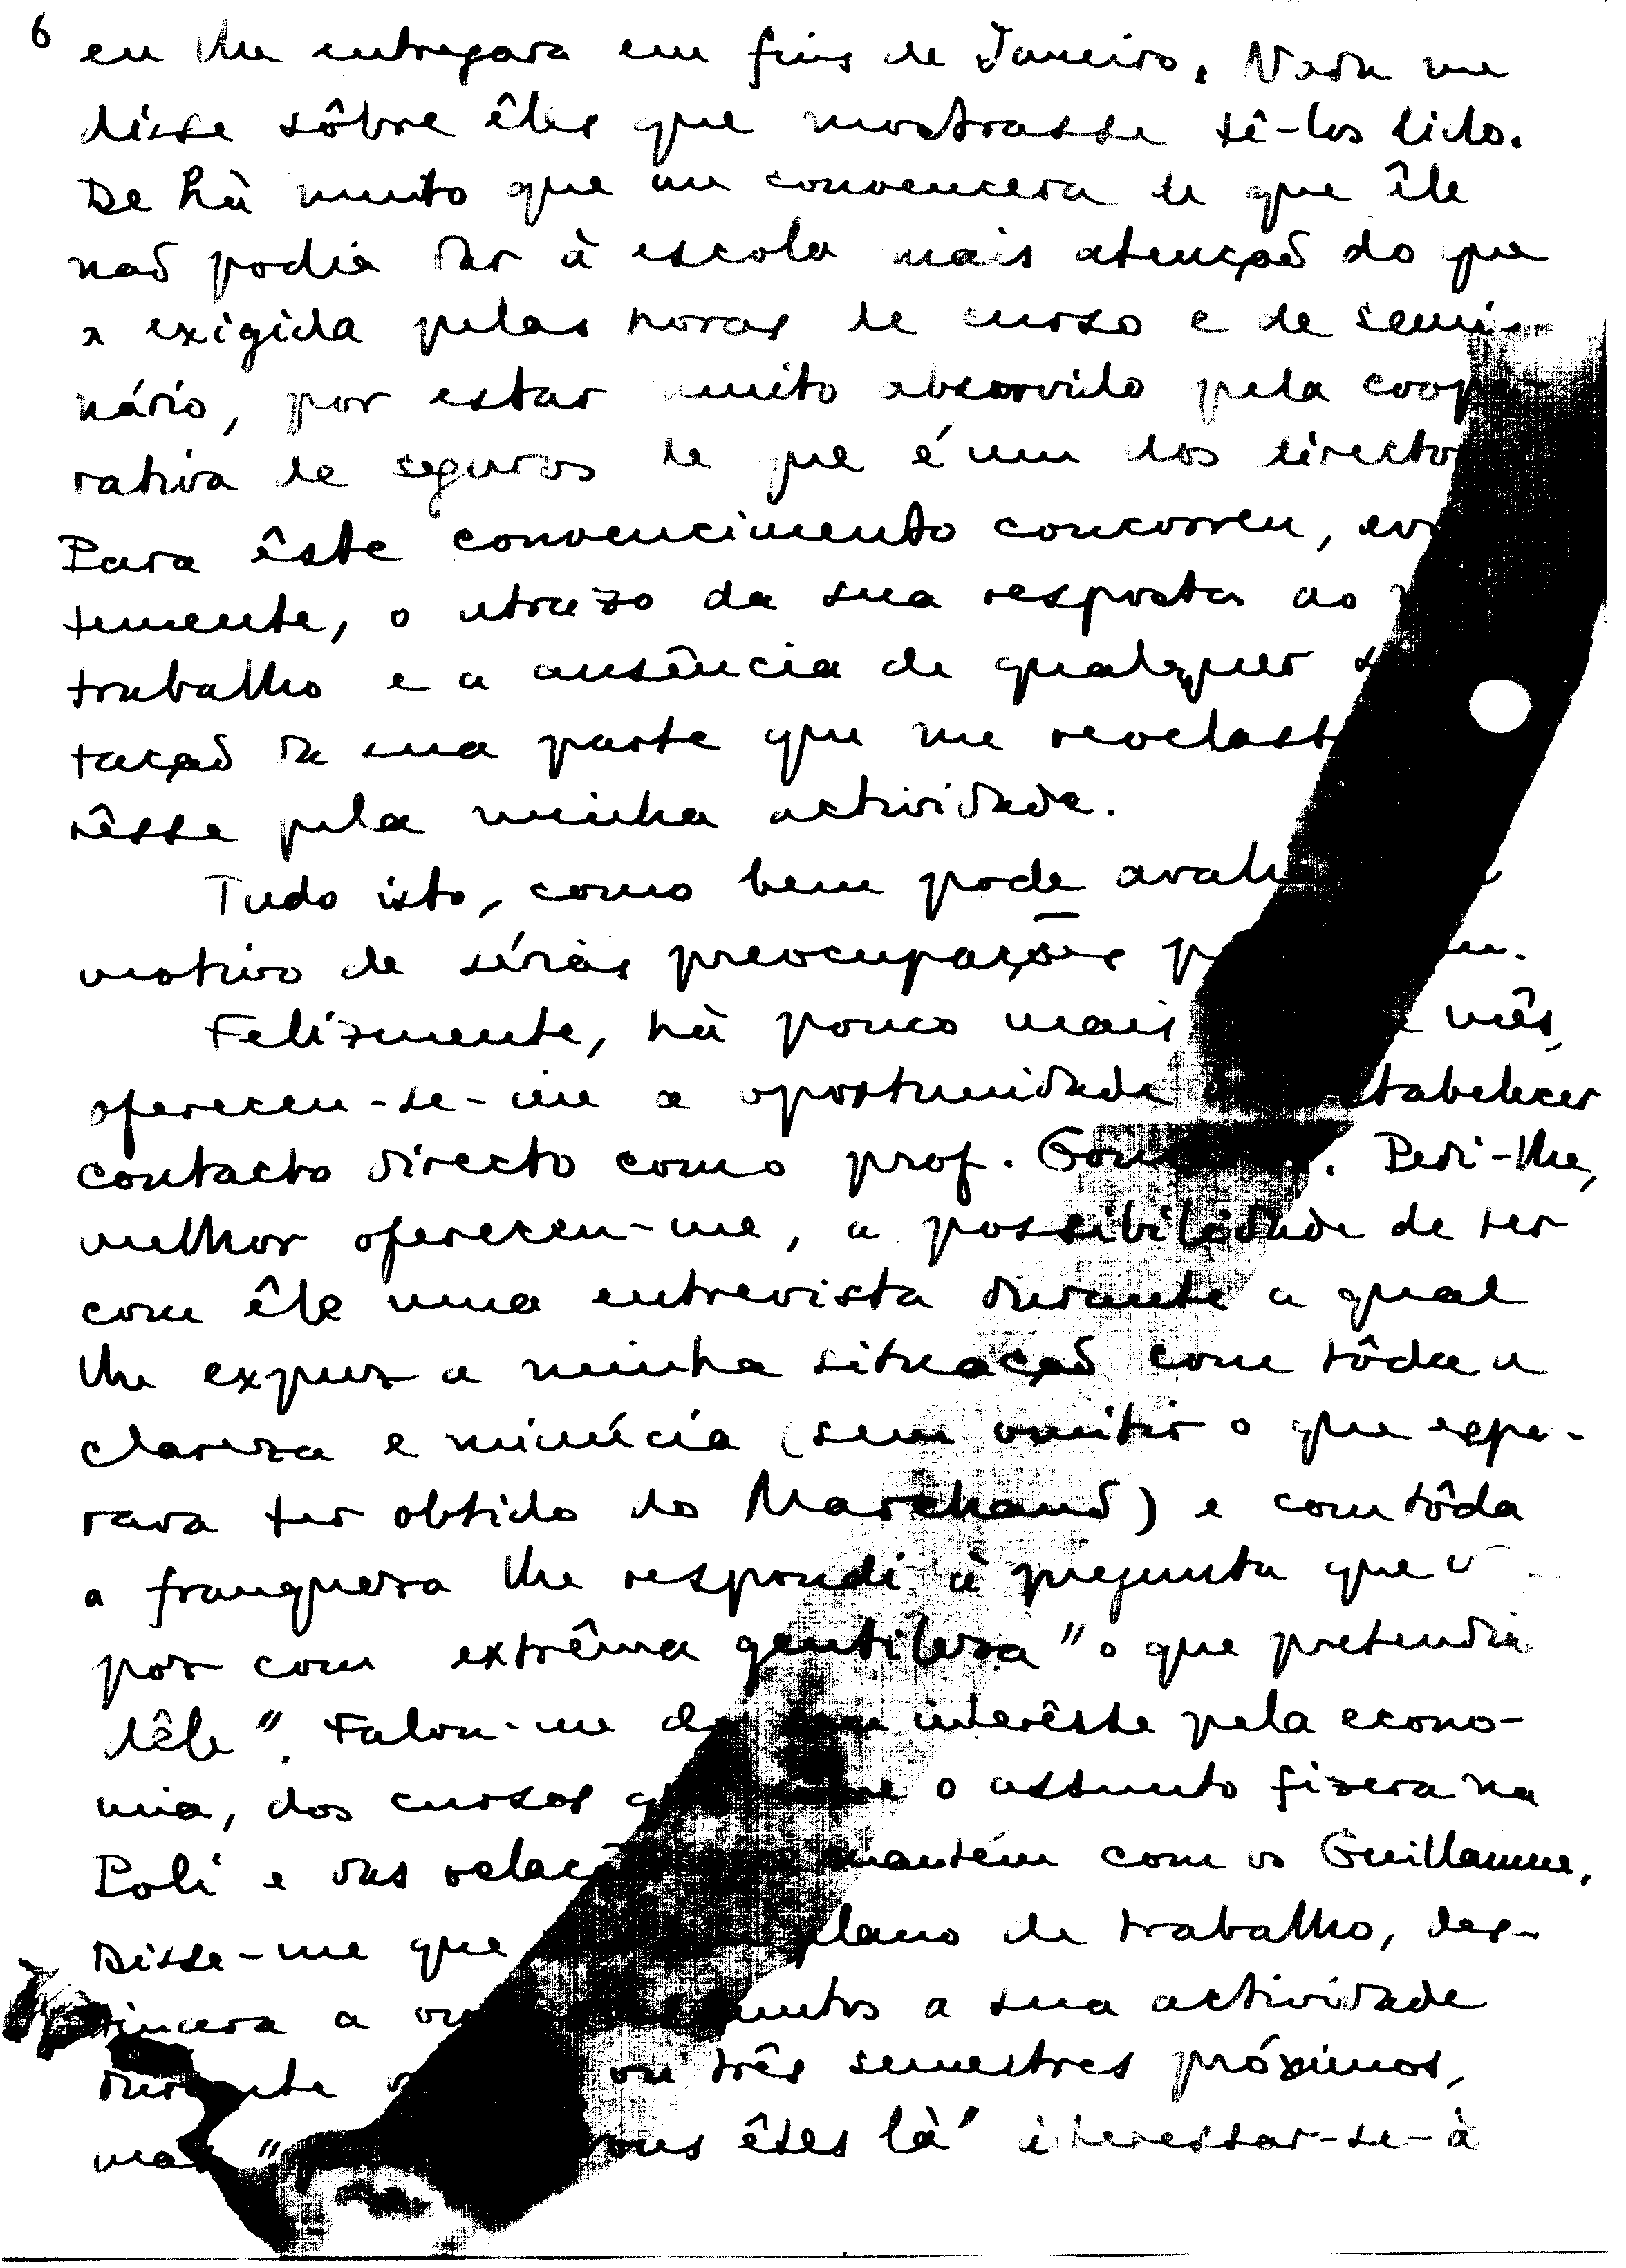 6
eu lhe entregara em fins de Janeiro. Nada me
disse sôbre êles que mostrasse tê-los lido.
De há muito que me convencera de que êle
não podia dar à escola mais atenção do que
a exigida pelas horas de curso e de semi-
nário, por estar muito absorvido pela coope-
rativa de seguros de que é um dos director
Para êste convencimento concorreu, evi
temente, o atrazo da sua resposta ao
trabalho e a ausência de qualquer
tação da sua parte que me revelasse
rêsse pela minha actividade.
Tudo isto, como bem pode avali
motivo de sérias preocupações p
Felizmente, há pouco mais mês,
ofereceu-se-me a oportunidade stabelecer
contacto directo como prof. Gon . Pedi-lhe,
melhor ofereceu-me, a possibilidade de ter
com êle uma entrevista durante a qual
lhe expuz a minha situação com tôda a
clareza e minúcia (sem omitir o que espe-
rava ter obtido do Marchand) e com tôda
a franqueza lhe respondi à pregunta que
poz com extrêma gentileza "o que pretendia
dêle". Falou-me do seu interêsse pela econo-
mia, dos cursos que sobre o assunto fizera na
Poli e das relaç mantém com os Guillaume.
Disse-me que plano de trabalho, des-
tinara a ou untos a sua actividade
durante o ou três semestres próximos,
mas " vous êtes là" interessar-se-à